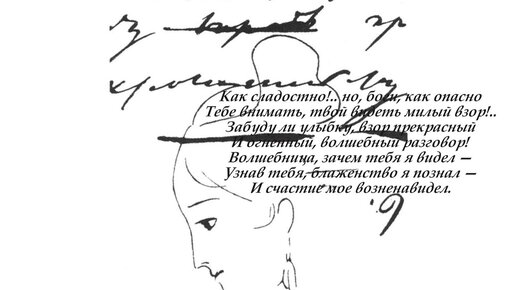 Как сладостно!.. но, боги, как опасно
Тебе внимать, твой видеть милый взор!..
Забуду ли улыбку, взор прекрасный
И огненный, волшебный разговор!
Волшебница, зачем тебя я видел —
Узнав тебя, блаженство я познал —
И счастие мое возненавидел.